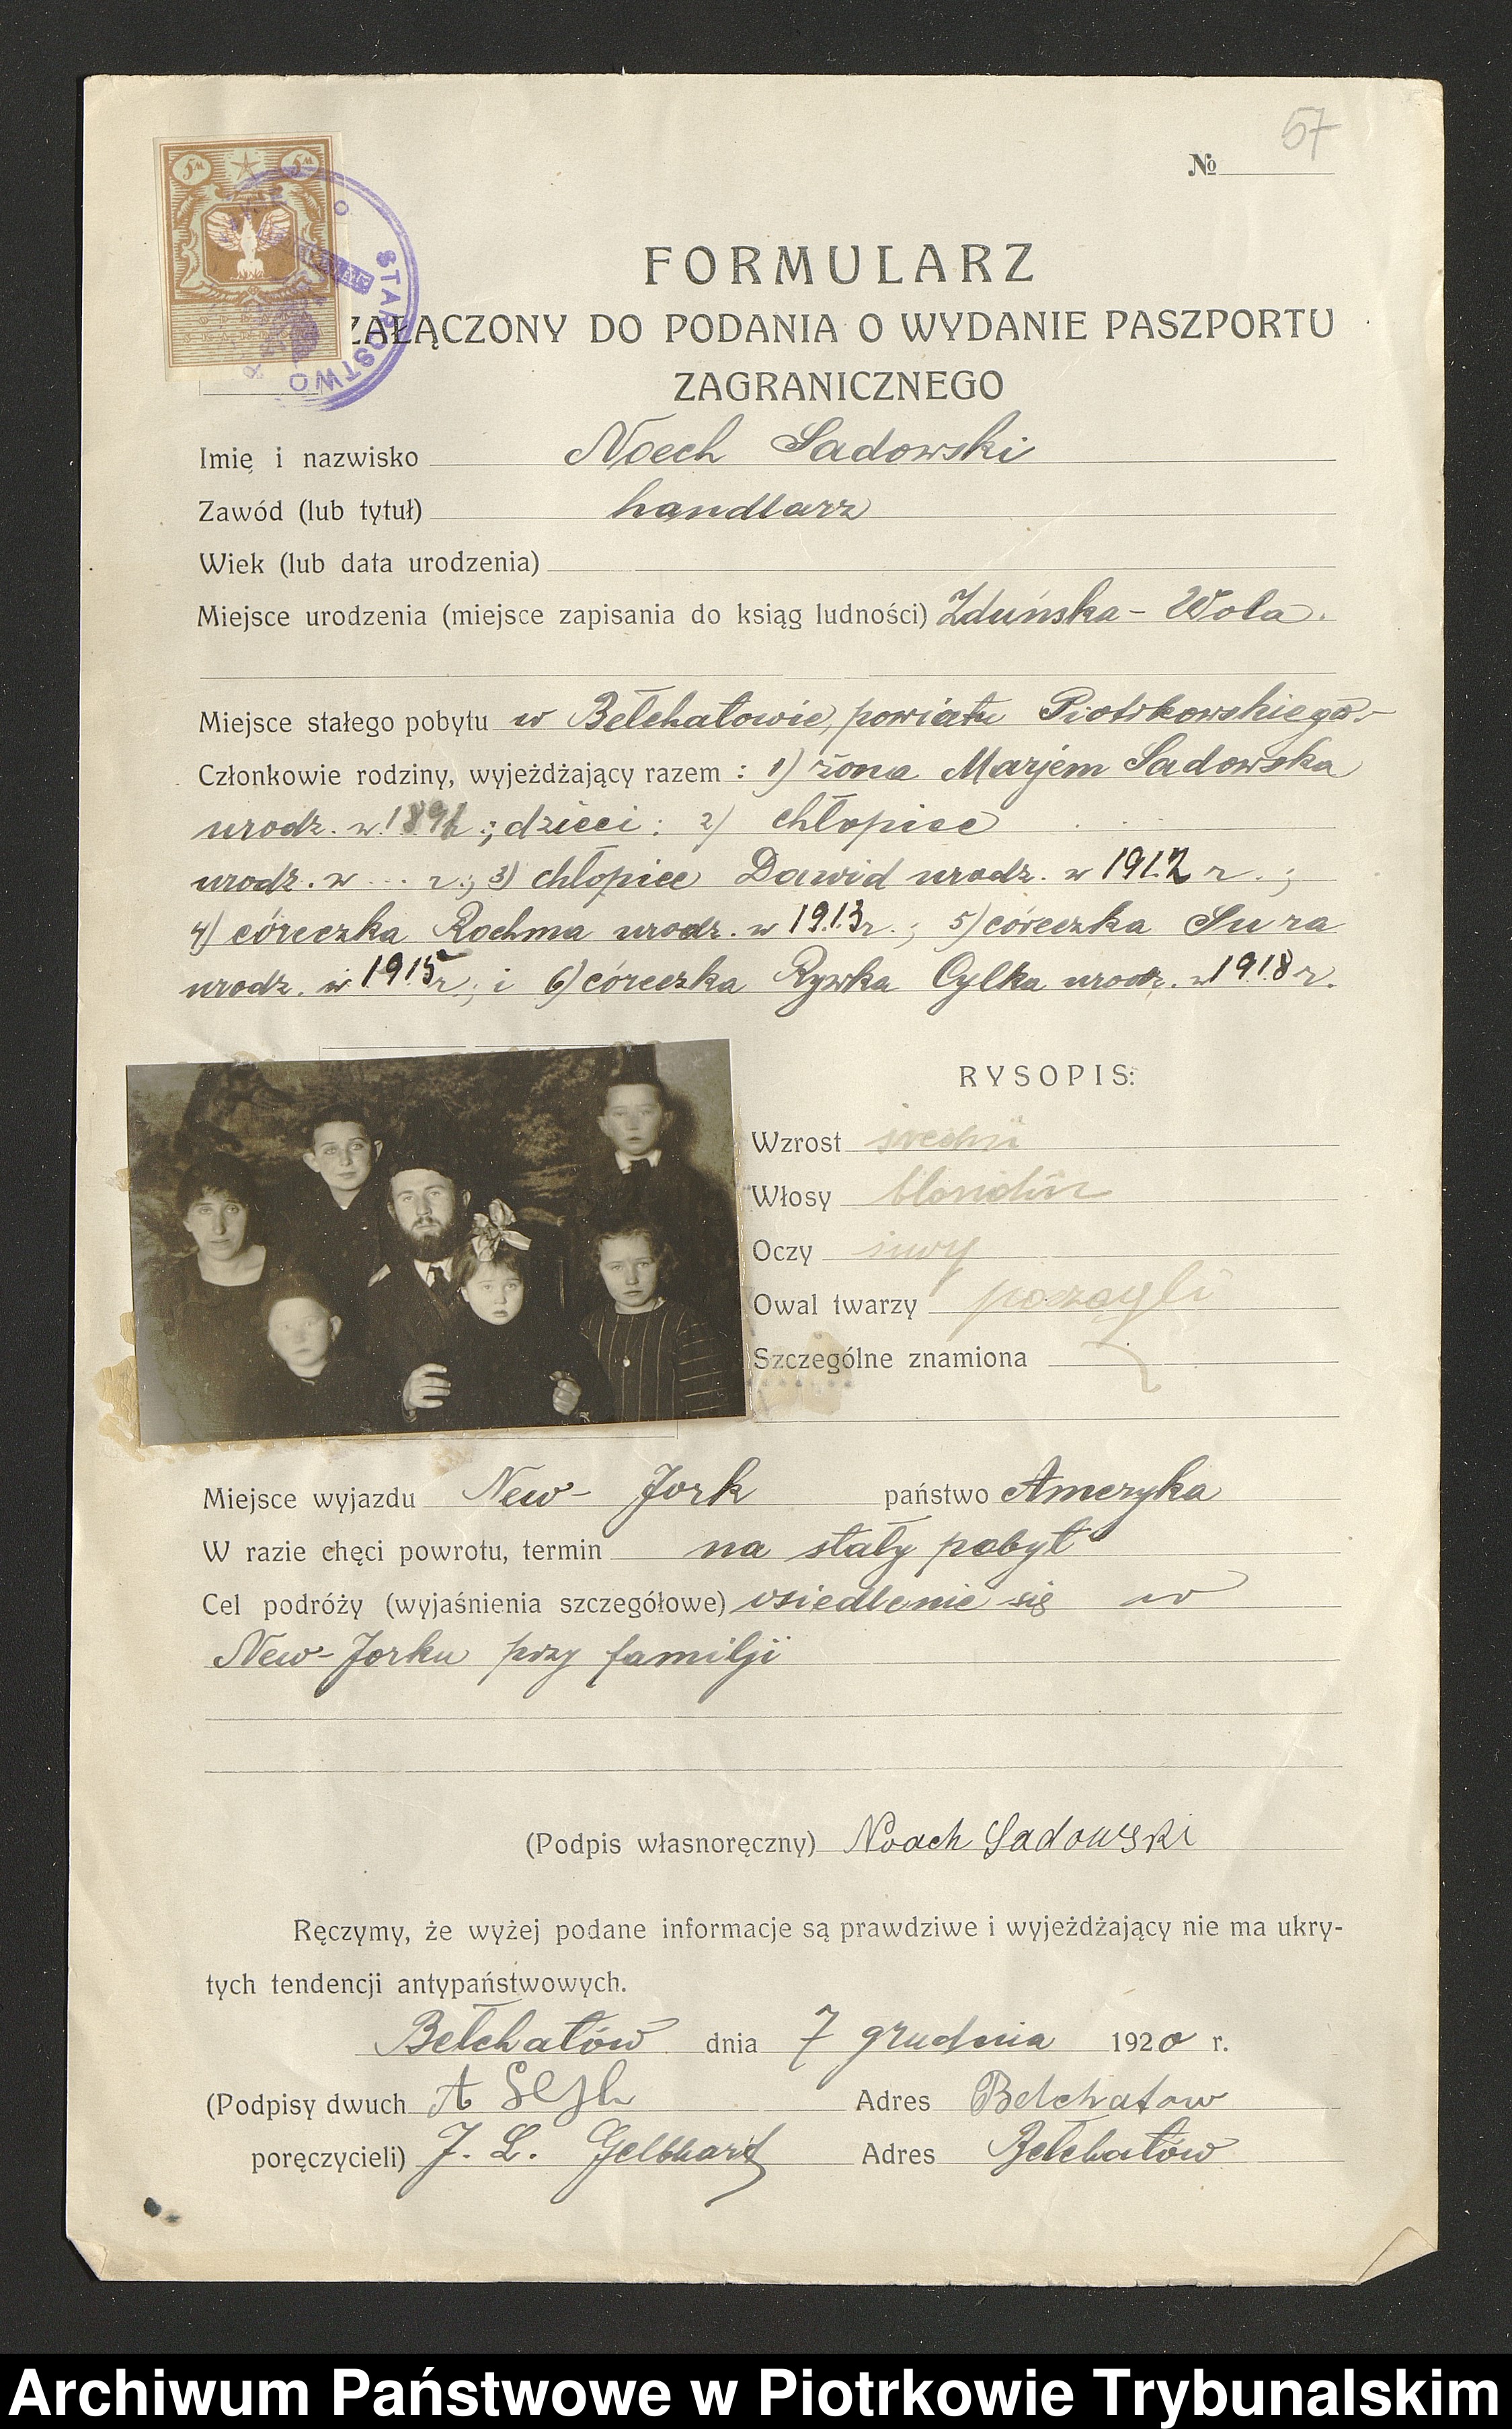 57
№
5M 5M
STAROSTWO
FORMULARZ
ZAŁĄCZONY DO PODANIA O WYDANIE PASZPORTU
ZAGRANICZNEGO
Imię i nazwisko Noech Sadowski
Zawód (lub tytuł) handlarz
Wiek (lub data urodzenia)
Miejsce urodzenia (miejsce zapisania do ksiąg ludności) Zduńska-Wola.
Miejsce stałego pobytu w Bełchatowie, powiatu Piotrkowskiego
Członkowie rodziny, wyjeżdżający razem : 1) żona Marjem Sadowska
urodz. w ; dzieci: 2) chłopiec
urodz. w ... r.; 3) chłopiec Dawid urodz. w 1912 r.;
4) córeczka Rochma urodz. w 1913 r.; 5) córeczka Sura
urodz. w 1915 r.; i 6) córeczka Rywka Cylka urodz. w 1918 r.
RYSOPIS:
Wzrost średni
Włosy blondin
Oczy siwy
Owal twarzy
Szczególne znamiona
Miejsce wyjazdu New-Jork państwo Ameryka
W razie chęci powrotu, termin na stały pobyt
Cel podróży (wyjaśnienia szczegółowe) osiedlenie się w
New-Jorku przy familji
(Podpis własnoręczny) Noach Sadowski
Ręczymy, że wyżej podane informacje są prawdziwe i wyjeżdżający nie ma ukry-
tych tendencji antypaństwowych.
Bełchatów dnia 7 grudnia 1920 r.
(Podpisy dwuch A Adres Belchatow
poręczycieli) J. L. Gelbhard Adres Bełchatów
Archiwum Państwowe w Piotrkowie Trybunalskim